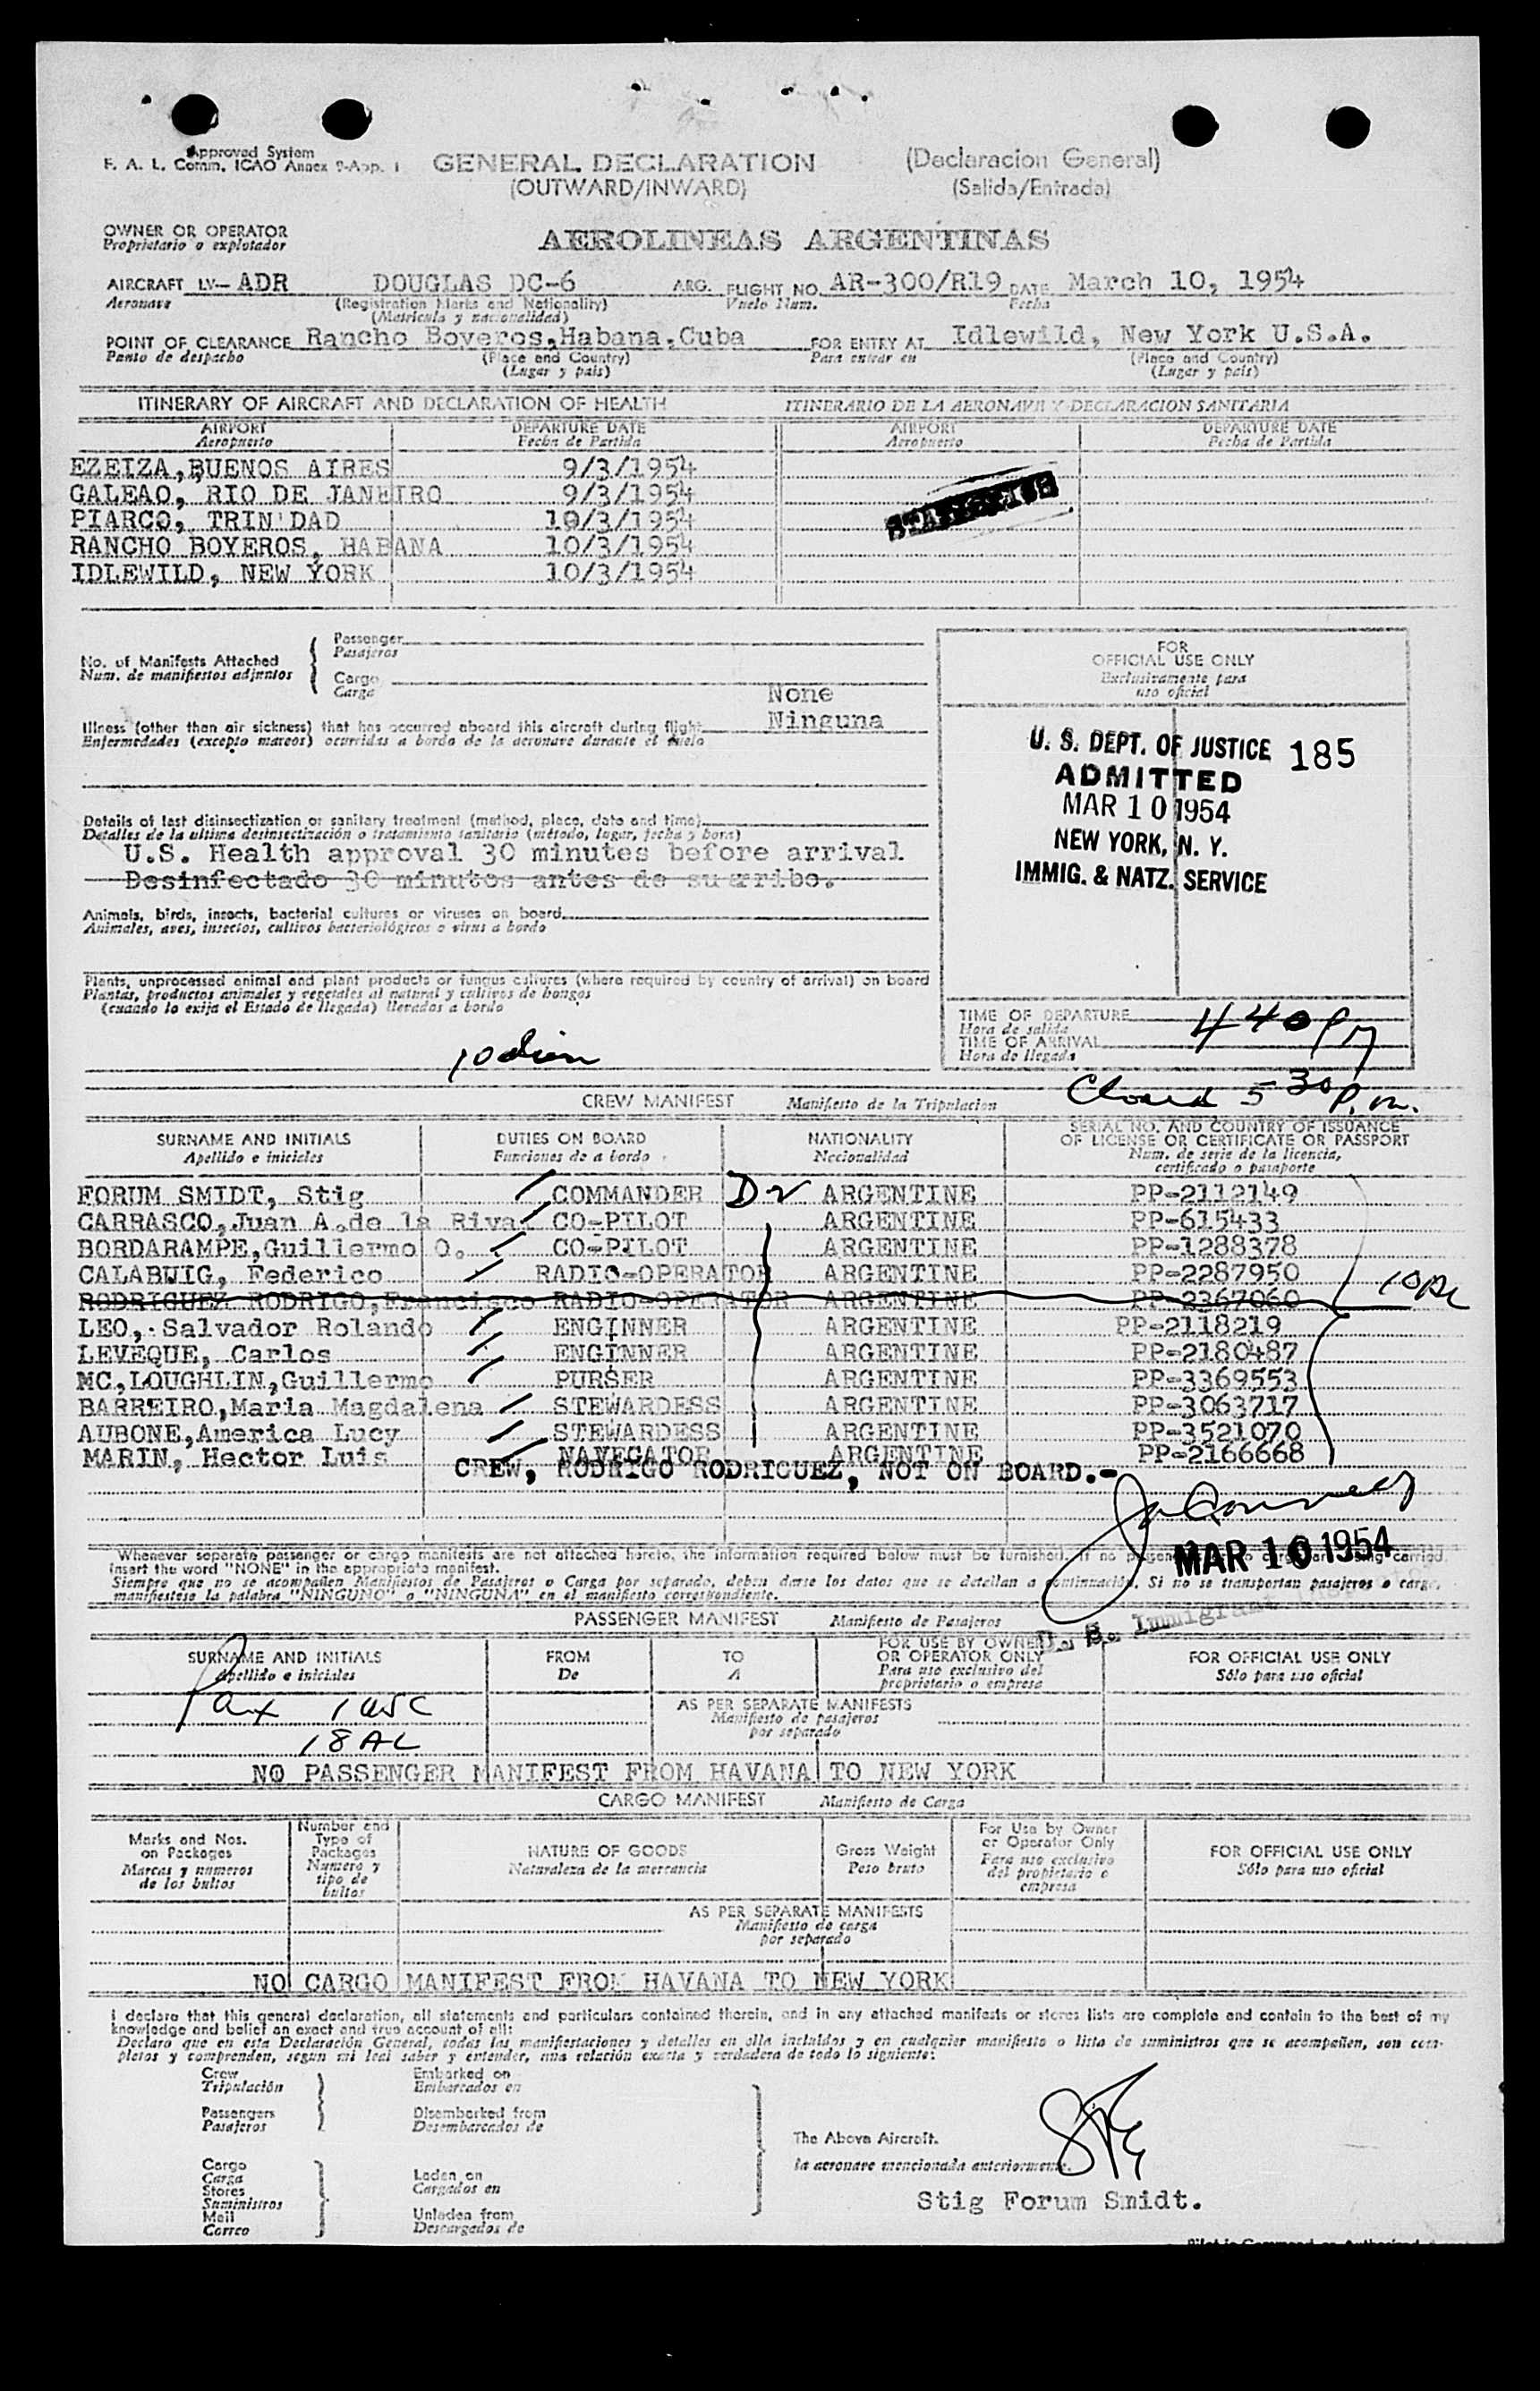 Approved System
F. A. L. Comm. ICAO Annex 9-App. 1
GENERAL DECLARATION (Declaracion General)
(OUTWARD/INWARD) (Salida/Entrada)
OWNER OR OPERATOR
Proprietario o explotador
AEROLINEAS ARGENTINAS
AIRCRAFT LV- ADR DOUGLAS DC-6 ARG. FLIGHT NO. AR-300/R19 DATE March 10, 1954
Aeronave (Registration Marks and Nationality) Vuelo Num. Fecha
(Matricula y nacionalidad)
POINT OF CLEARANCE Rancho Boyeros,Habana,Cuba FOR ENTRY AT Idlewild, New York U.S.A.
Punto de despacho (Place and Country) Para entrar en (Place and Country)
(Lugar y país) (Lugar y país)
ITINERARY OF AIRCRAFT AND DECLARATION OF HEALTH ITINERARIO DE LA AERONAVE Y DECLARACION SANITARIA
AIRPORT DEPARTURE DATE AIRPORT DEPARTURE DATE
Aeropuerto Fecha de Partida Aeropuerto Fecha de Partida
EZEIZA,BUENOS AIRES 9/3/1954
GALEAO, RIO DE JANEIRO 9/3/1954
PIARCO, TRIN'DAD 10/3/1954
RANCHO BOYEROS, HABANA 10/3/1954
IDLEWILD, NEW YORK 10/3/1954
No. of Manifests Attached
Num. de manifiestos adjuntos
Passenger
Pasajeros
Cargo
Carga
None
Illness (other than air sickness) that has occurred aboard this aircraft during flight Ninguna
Enfermedades (excepto mareos) ocurridas a bordo de la aeronave durante el vuelo
Details of last disinsectization or sanitary treatment (method, place, date and time)
Detalles de la ultima desinsectización o tratamiento sanitario (método, lugar, fecha y hora)
U.S. Health approval 30 minutes before arrival
Desinfectado 30 minutos antes de su arribo.
Animals, birds, insects, bacterial cultures or viruses on board
Animales, aves, insectos, cultivos bacteriológicos o virus a bordo
Plants, unprocessed animal and plant products or fungus cultures (where required by country of arrival) on board
Plantas, productos animales y vegetales al natural y cultivos de hongos
(cuando lo exija el Estado de llegada) llevados a bordo
FOR
OFFICIAL USE ONLY
Exclusivamente para
uso oficial
U. S. DEPT. OF JUSTICE 185
ADMITTED
MAR 10 1954
NEW YORK, N. Y.
IMMIG. & NATZ. SERVICE
TIME OF DEPARTURE
Hora de salida
TIME OF ARRIVAL 4 40 PM
Hora de llegada
5 30 P.m.
CREW MANIFEST Manifiesto de la Tripulacion
SURNAME AND INITIALS DUTIES ON BOARD NATIONALITY SERIAL NO. AND COUNTRY OF ISSUANCE
OF LICENSE OR CERTIFICATE OR PASSPORT
Apellido e iniciales Funciones de a bordo Nacionalidad Num. de serie de la licencia,
certificado o pasaporte
FORUM SMIDT, Stig COMMANDER ARGENTINE PP-2112149
CARRASCO,Juan A.de la Riva CO-PILOT ARGENTINE PP-615433
BORDARAMPE,Guillermo O. CO-PILOT ARGENTINE PP-1288378
CALABUIG, Federico RADIO-OPERATOR ARGENTINE PP-2287950
RODRIGUEZ RODRIGO,Francisco RADIO-OPERATOR ARGENTINE PP-2367060
LEO, Salvador Rolando ENGINNER ARGENTINE PP-2118219
LEVEQUE, Carlos ENGINNER ARGENTINE PP-2180487
MC,LOUGHLIN,Guillermo PURSER ARGENTINE PP-3369553
BARREIRO,Maria Magdalena STEWARDESS ARGENTINE PP-3063717
AUBONE,America Lucy STEWARDESS ARGENTINE PP-3521070
MARIN, Hector Luis NAVEGATOR ARGENTINE PP-2166668
CREW, RODRIGO RODRIGUEZ, NOT ON BOARD.-
MAR 10 1954
U. S. Immigrant Inspector
Whenever separate passenger or cargo manifests are not attached hereto, the information required below must be furnished. If no passengers or cargo are being carried,
insert the word "NONE" in the appropriate manifest.
Siempre que no se acompañen Manifiestos de Pasajeros o Carga por separado, deben darse los datos que se detallan a continuación. Si no se transportan pasajeros o carga,
manifiestese la palabra "NINGUNO" o "NINGUNA" en el manifiesto correspondiente.
PASSENGER MANIFEST Manifiesto de Pasajeros
SURNAME AND INITIALS FROM TO FOR USE BY OWNER
OR OPERATOR ONLY FOR OFFICIAL USE ONLY
Apellido e iniciales De A Para uso exclusivo del
propietario o empresa Sólo para uso oficial
Pax 1 USC
18 AL
AS PER SEPARATE MANIFESTS
Manifiesto de pasajeros
por separado
NO PASSENGER MANIFEST FROM HAVANA TO NEW YORK
CARGO MANIFEST Manifiesto de Carga
Marks and Nos.
on Packages
Marcas y numeros
de los bultos
Number and
Type of
Packages
Numero y
tipo de
bultos
NATURE OF GOODS
Naturaleza de la mercancia
Gross Weight
Peso bruto
For Use by Owner
or Operator Only
Para uso exclusivo
del propietario o
empresa
FOR OFFICIAL USE ONLY
Sólo para uso oficial
AS PER SEPARATE MANIFESTS
Manifiesto de carga
por separado
NO CARGO MANIFEST FROM HAVANA TO NEW YORK
I declare that this general declaration, all statements and particulars contained therein, and in any attached manifests or stores lists are complete and contain to the best of my
knowledge and belief an exact and true account of all:
Declaro que en esta Declaración General, todas las manifestaciones y detalles en ella incluídos y en cualquier manifiesto o lista de suministros que se acompañen, son com-
pletos y comprenden, segun mi leal saber y entender, una relación exacta y verdadera de todo lo siguiente:
Crew
Tripulación
Passengers
Pasajeros
Embarked on
Embarcados en
Disembarked from
Desembarcados de
Cargo
Carga
Stores
Suministros
Mail
Correo
Laden on
Cargados en
Unladen from
Descargados de
The Above Aircraft.
la aeronave mencionada anteriormente.
Stig Forum Smidt.